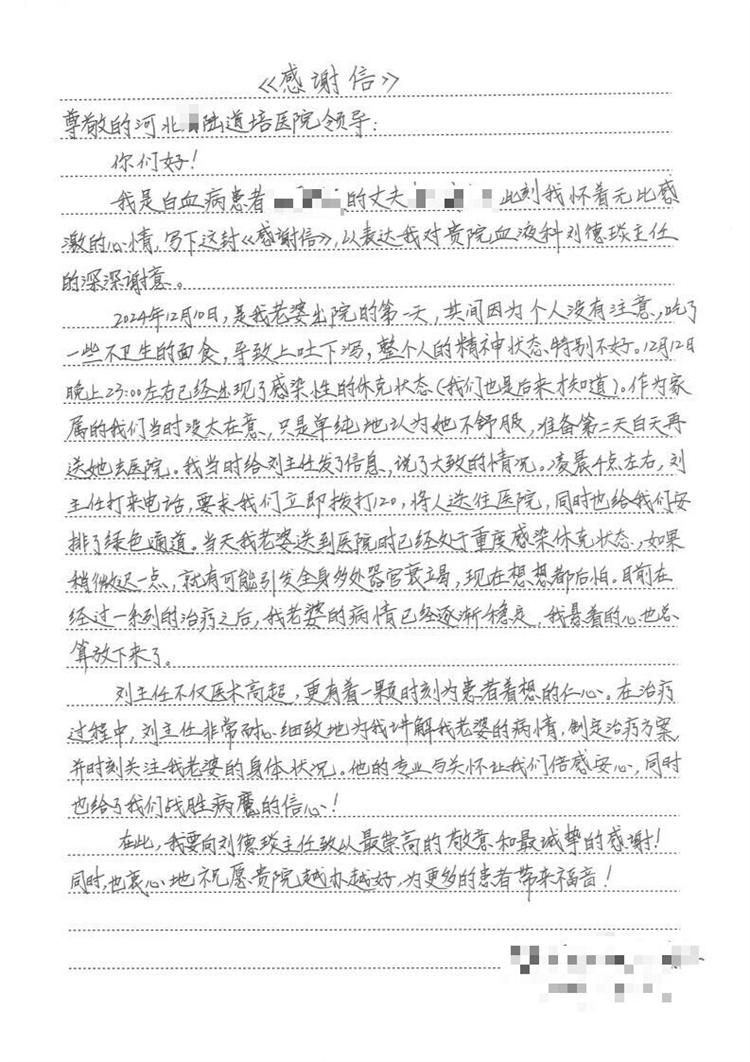 《感谢信》
尊敬的河北 陆道培医院领导:
你们好!
我是白血病患者 的丈夫 此刻我怀着无比感
激的心情,写下这封《感谢信》,以表达我对贵院血液科刘德琰主任
的深深谢意。
2024年12月10日,是我老婆出院的第一天,共间因为个人没有注意,吃了
一些不卫生的面食,导致上吐下泻,整个人的精神状态特别不好。12月12日
晚上23:00左右已经出现了感染性的休克状态(我们也是后来才知道)。作为家
属的我们当时没太在意,只是单纯地认为她不舒服,准备第二天白天再
送她去医院。我当时给刘主任发了信息,说了大致的情况。凌晨4点左右,刘
主任打来电话,要求我们立即拨打120,将人送往医院,同时也给我们安
排了绿色通道。当天我老婆送到医院时已经处于重度感染休克状态,如果
稍微迟一点,就有可能引发全身多处器官衰竭,现在想想都后怕。目前在
经过一系列的治疗之后,我老婆的病情已经逐渐稳定,我悬着的心也总
算放下来了。
刘主任不仅医术高超,更有着一颗时刻为患者着想的仁心。在治疗
过程中,刘主任非常耐心细致地为我讲解我老婆的病情,制定治疗方案,
并时刻关注我老婆的身体状况。他的专业与关怀让我们倍感安心,同时
也给了我们战胜病魔的信心!
在此,我要向刘德琰主任致以最崇高的敬意和最诚挚的感谢!
同时,也衷心地祝愿贵院越办越好,为更多的患者带来福音!